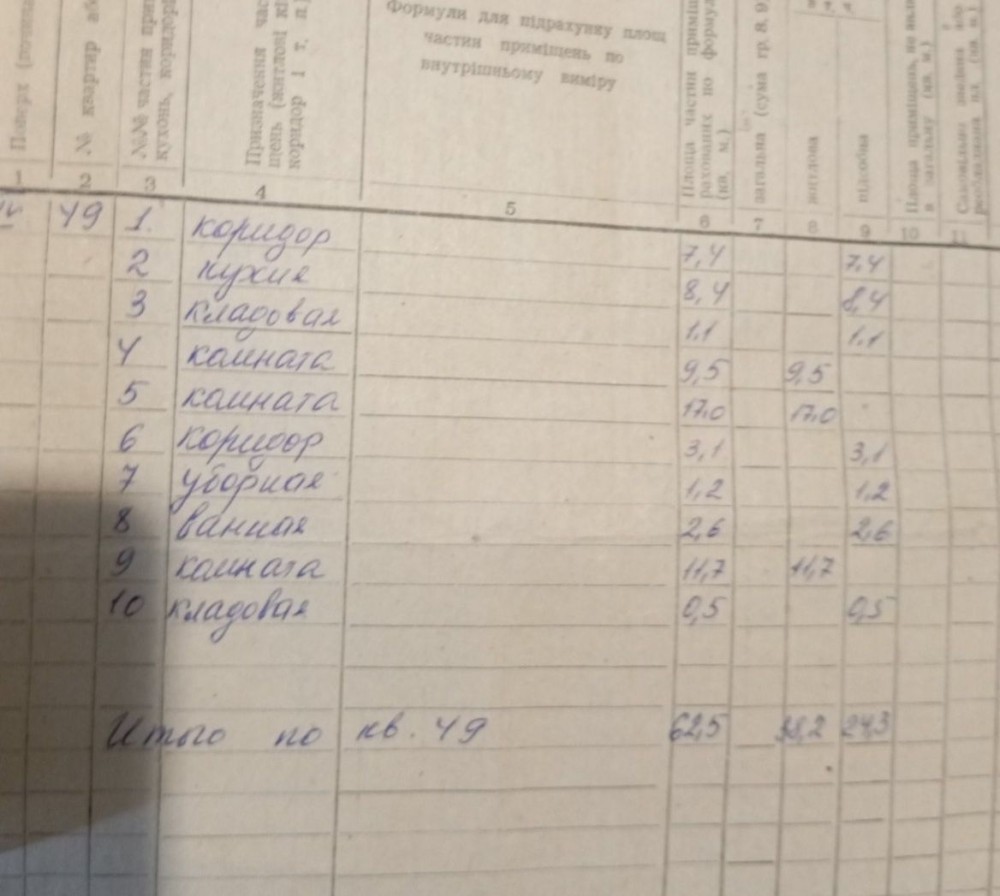 Поверх
№ квартир
№№ частин
кухонь, коридорі
Призначення час
щень (житлові кі
коридор і т. п.)
Формули для підрахунку площ
частин приміщень по
внутрішньому виміру
Площа частин приміщ
рахованих по формул
(кв. м.)
загальна (сума гр. 8, 9,
житлова
підсобна
Площа приміщень, не
в загальну (кв. м.)
Самовільно
1 2 3 4 5 6 7 8 9 10 11
49 1. коридор 7,4 7,4
2 кухня 8,4 8,4
3 кладовая 1.1 1.1
4 комната 9,5 9,5
5 комната 17.0 17.0
6 коридор 3,1 3,1
7 уборная 1,2 1,2
8 ванная 2,6 2,6
9 комната 11,7 11,7
10 кладовая 0,5 0,5
Итого по кв. 49 62,5 38,2 24,3